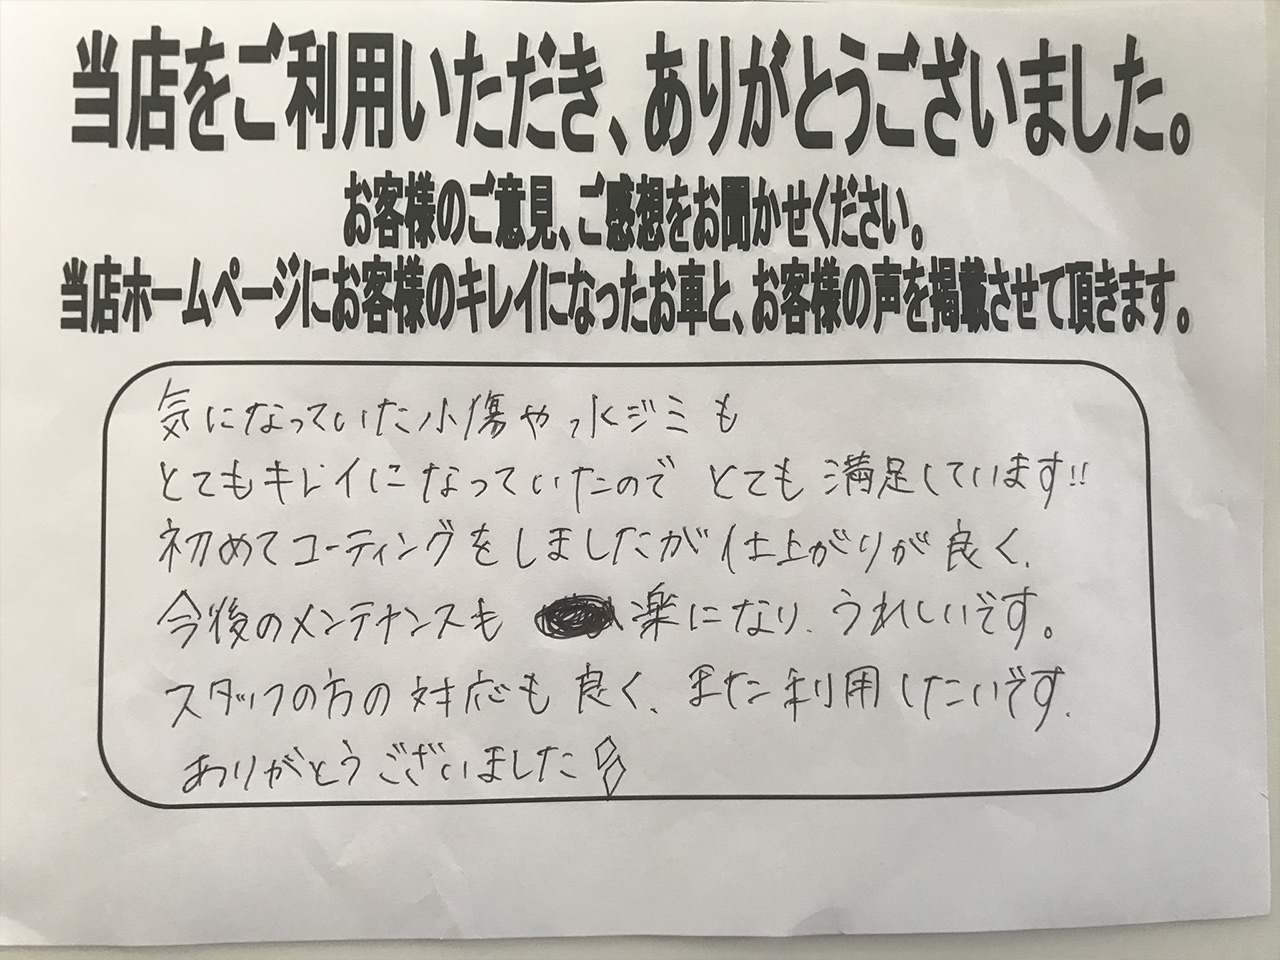 当店をご利用いただき、ありがとうございました。
お客様のご意見、ご感想をお聞かせください。
当店ホームページにお客様のキレイになったお車と、お客様の声を掲載させて頂きます。
気になっていた小傷や水ジミも
とてもキレイになっていたので とても満足しています!!
初めてコーティングをしましたが仕上がりが良く、
今後のメンテナンスも 楽になり、うれしいです。
スタッフの方の対応も良く、また利用したいです。
ありがとうございました